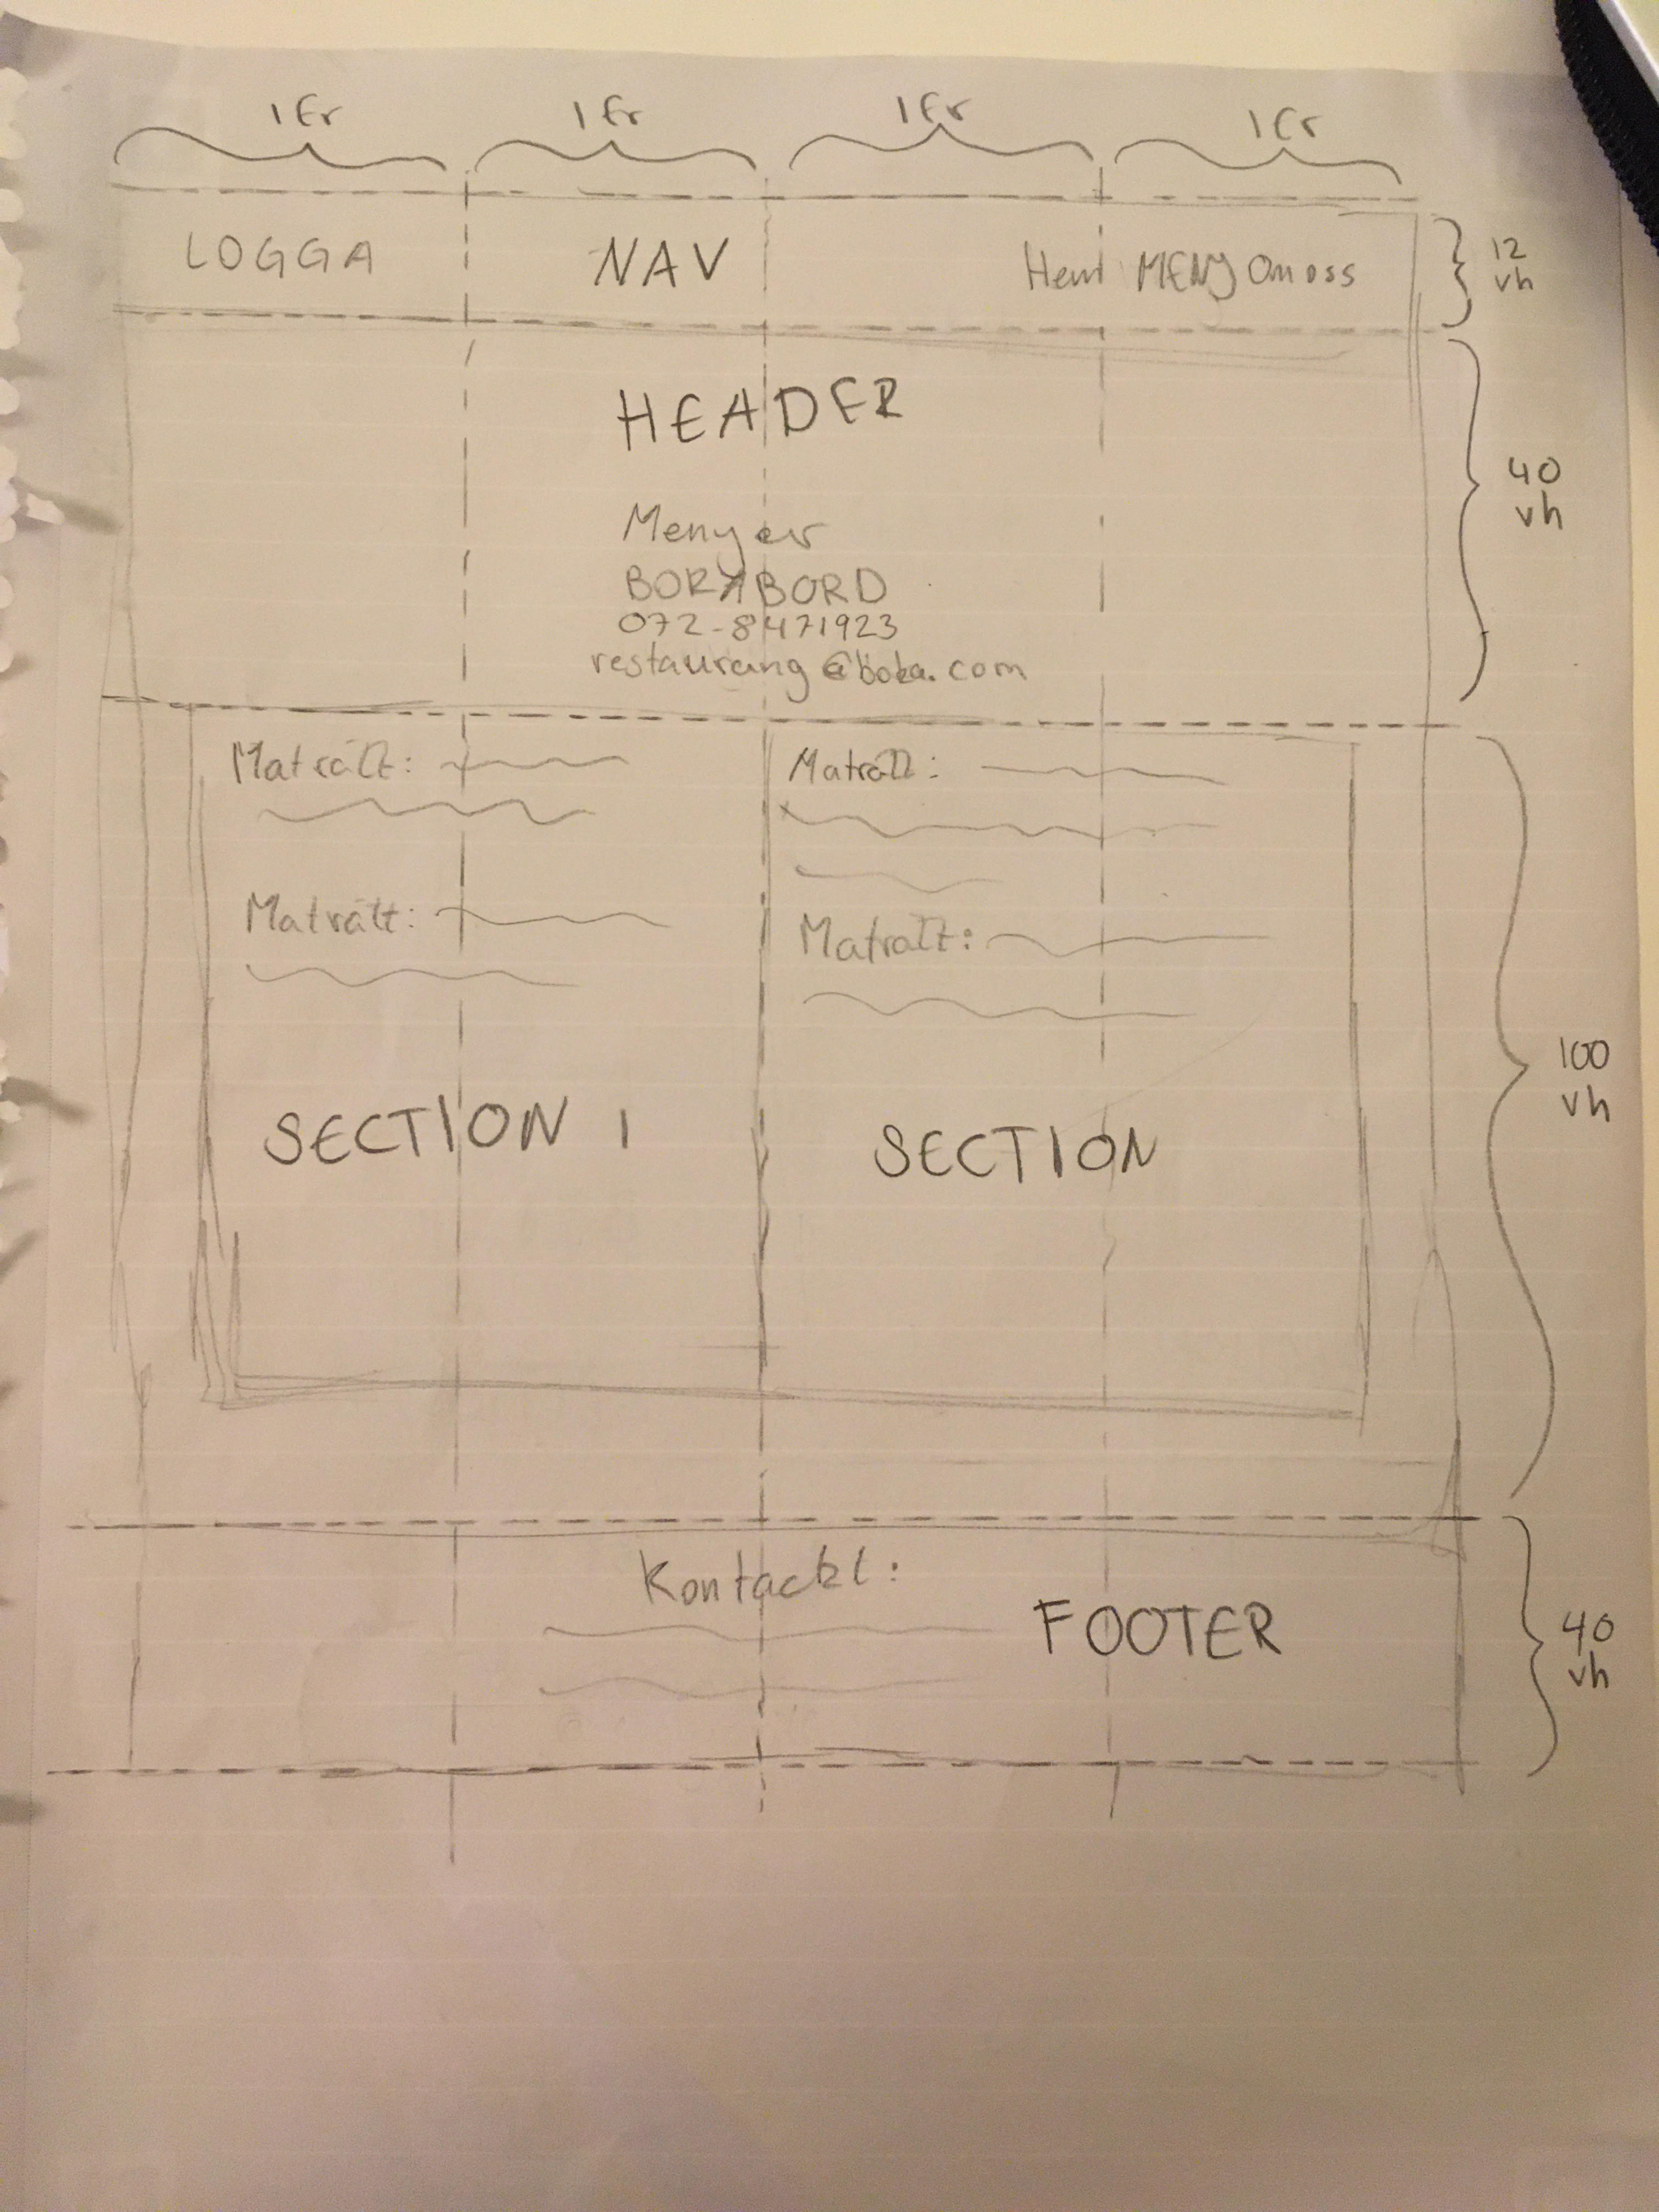 1fr 1fr 1fr 1fr
LOGGA NAV Hem MENY Om oss
12
vh
HEADER
40
vh
Menyer
BORDBORD
072-8471923
restaurang@boka.com
Maträtt: Maträtt:
Maträtt: Maträtt:
100
vh
SECTION 1 SECTION
Kontackt:
FOOTER
40
vh